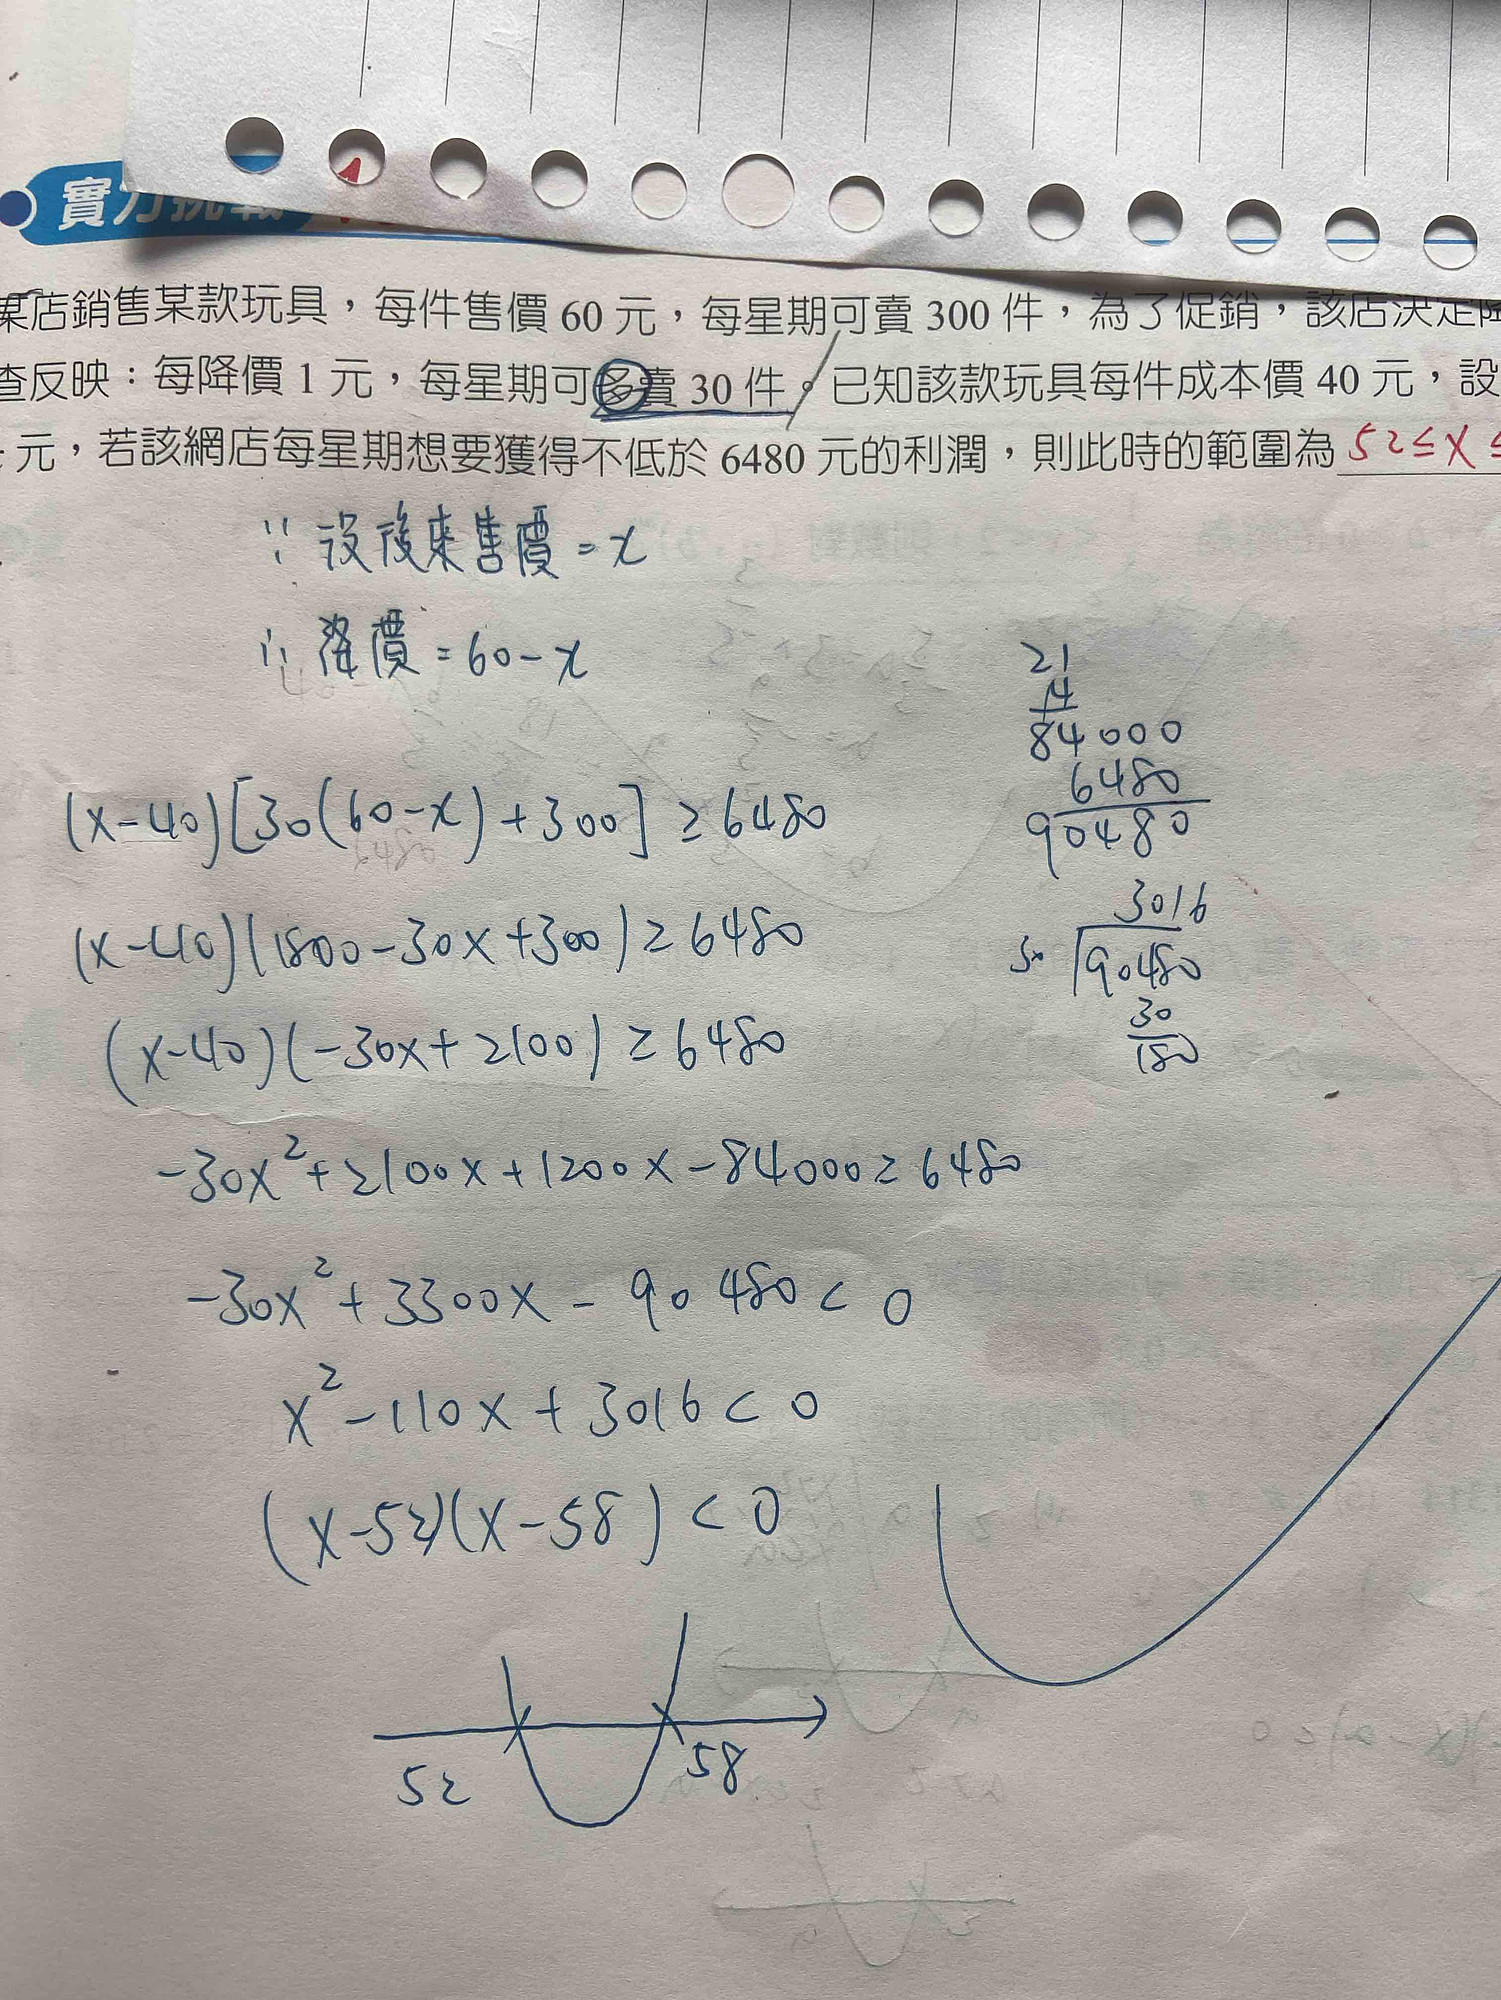 實力挑戰
某店銷售某款玩具，每件售價 60 元，每星期可賣 300 件，為了促銷，該店決定降
查反映：每降價 1 元，每星期可多賣 30 件。已知該款玩具每件成本價 40 元，設
元，若該網店每星期想要獲得不低於 6480 元的利潤，則此時的範圍為 52≤x≤
∵ 設後來售價=x
∴ 降價=60-x
(x-40)[30(60-x)+300]≥6480
(x-40)(1800-30x+300)≥6480
(x-40)(-30x+2100)≥6480
-30x²+2100x+1200x-84000≥6480
-30x²+3300x-90480<0
x²-110x+3016<0
(x-52)(x-58)<0
52
58
21
84000
6480
90480
3016
30
90480
30
180